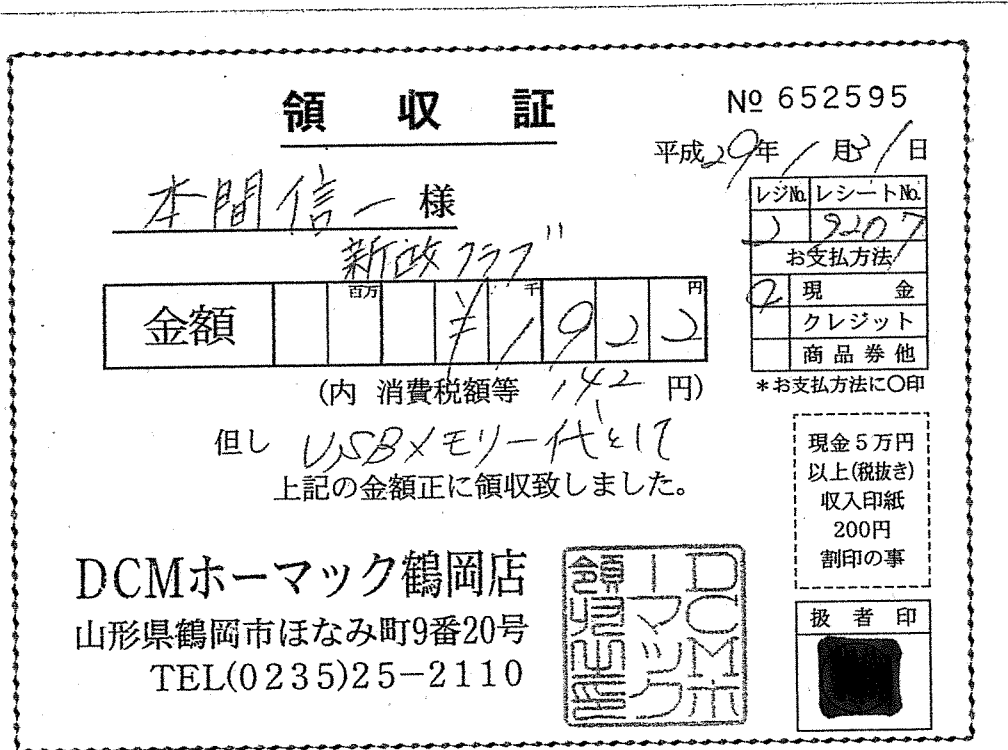 領 収 証
№ 652595
平成29年1月31日
本間信一 様
新政クラブ
レジ№ レシート№
2 9207
お支払方法
現 金
クレジット
商品券他
*お支払方法に○印
金額 百万 千 円
¥1922
(内 消費税額等 142 円)
但し USBメモリー代として
上記の金額正に領収致しました。
現金5万円
以上(税抜き)
収入印紙
200円
割印の事
DCMホーマック鶴岡店
山形県鶴岡市ほなみ町9番20号
TEL(0235)25-2110
DCMホ
ーマック
扱 者 印